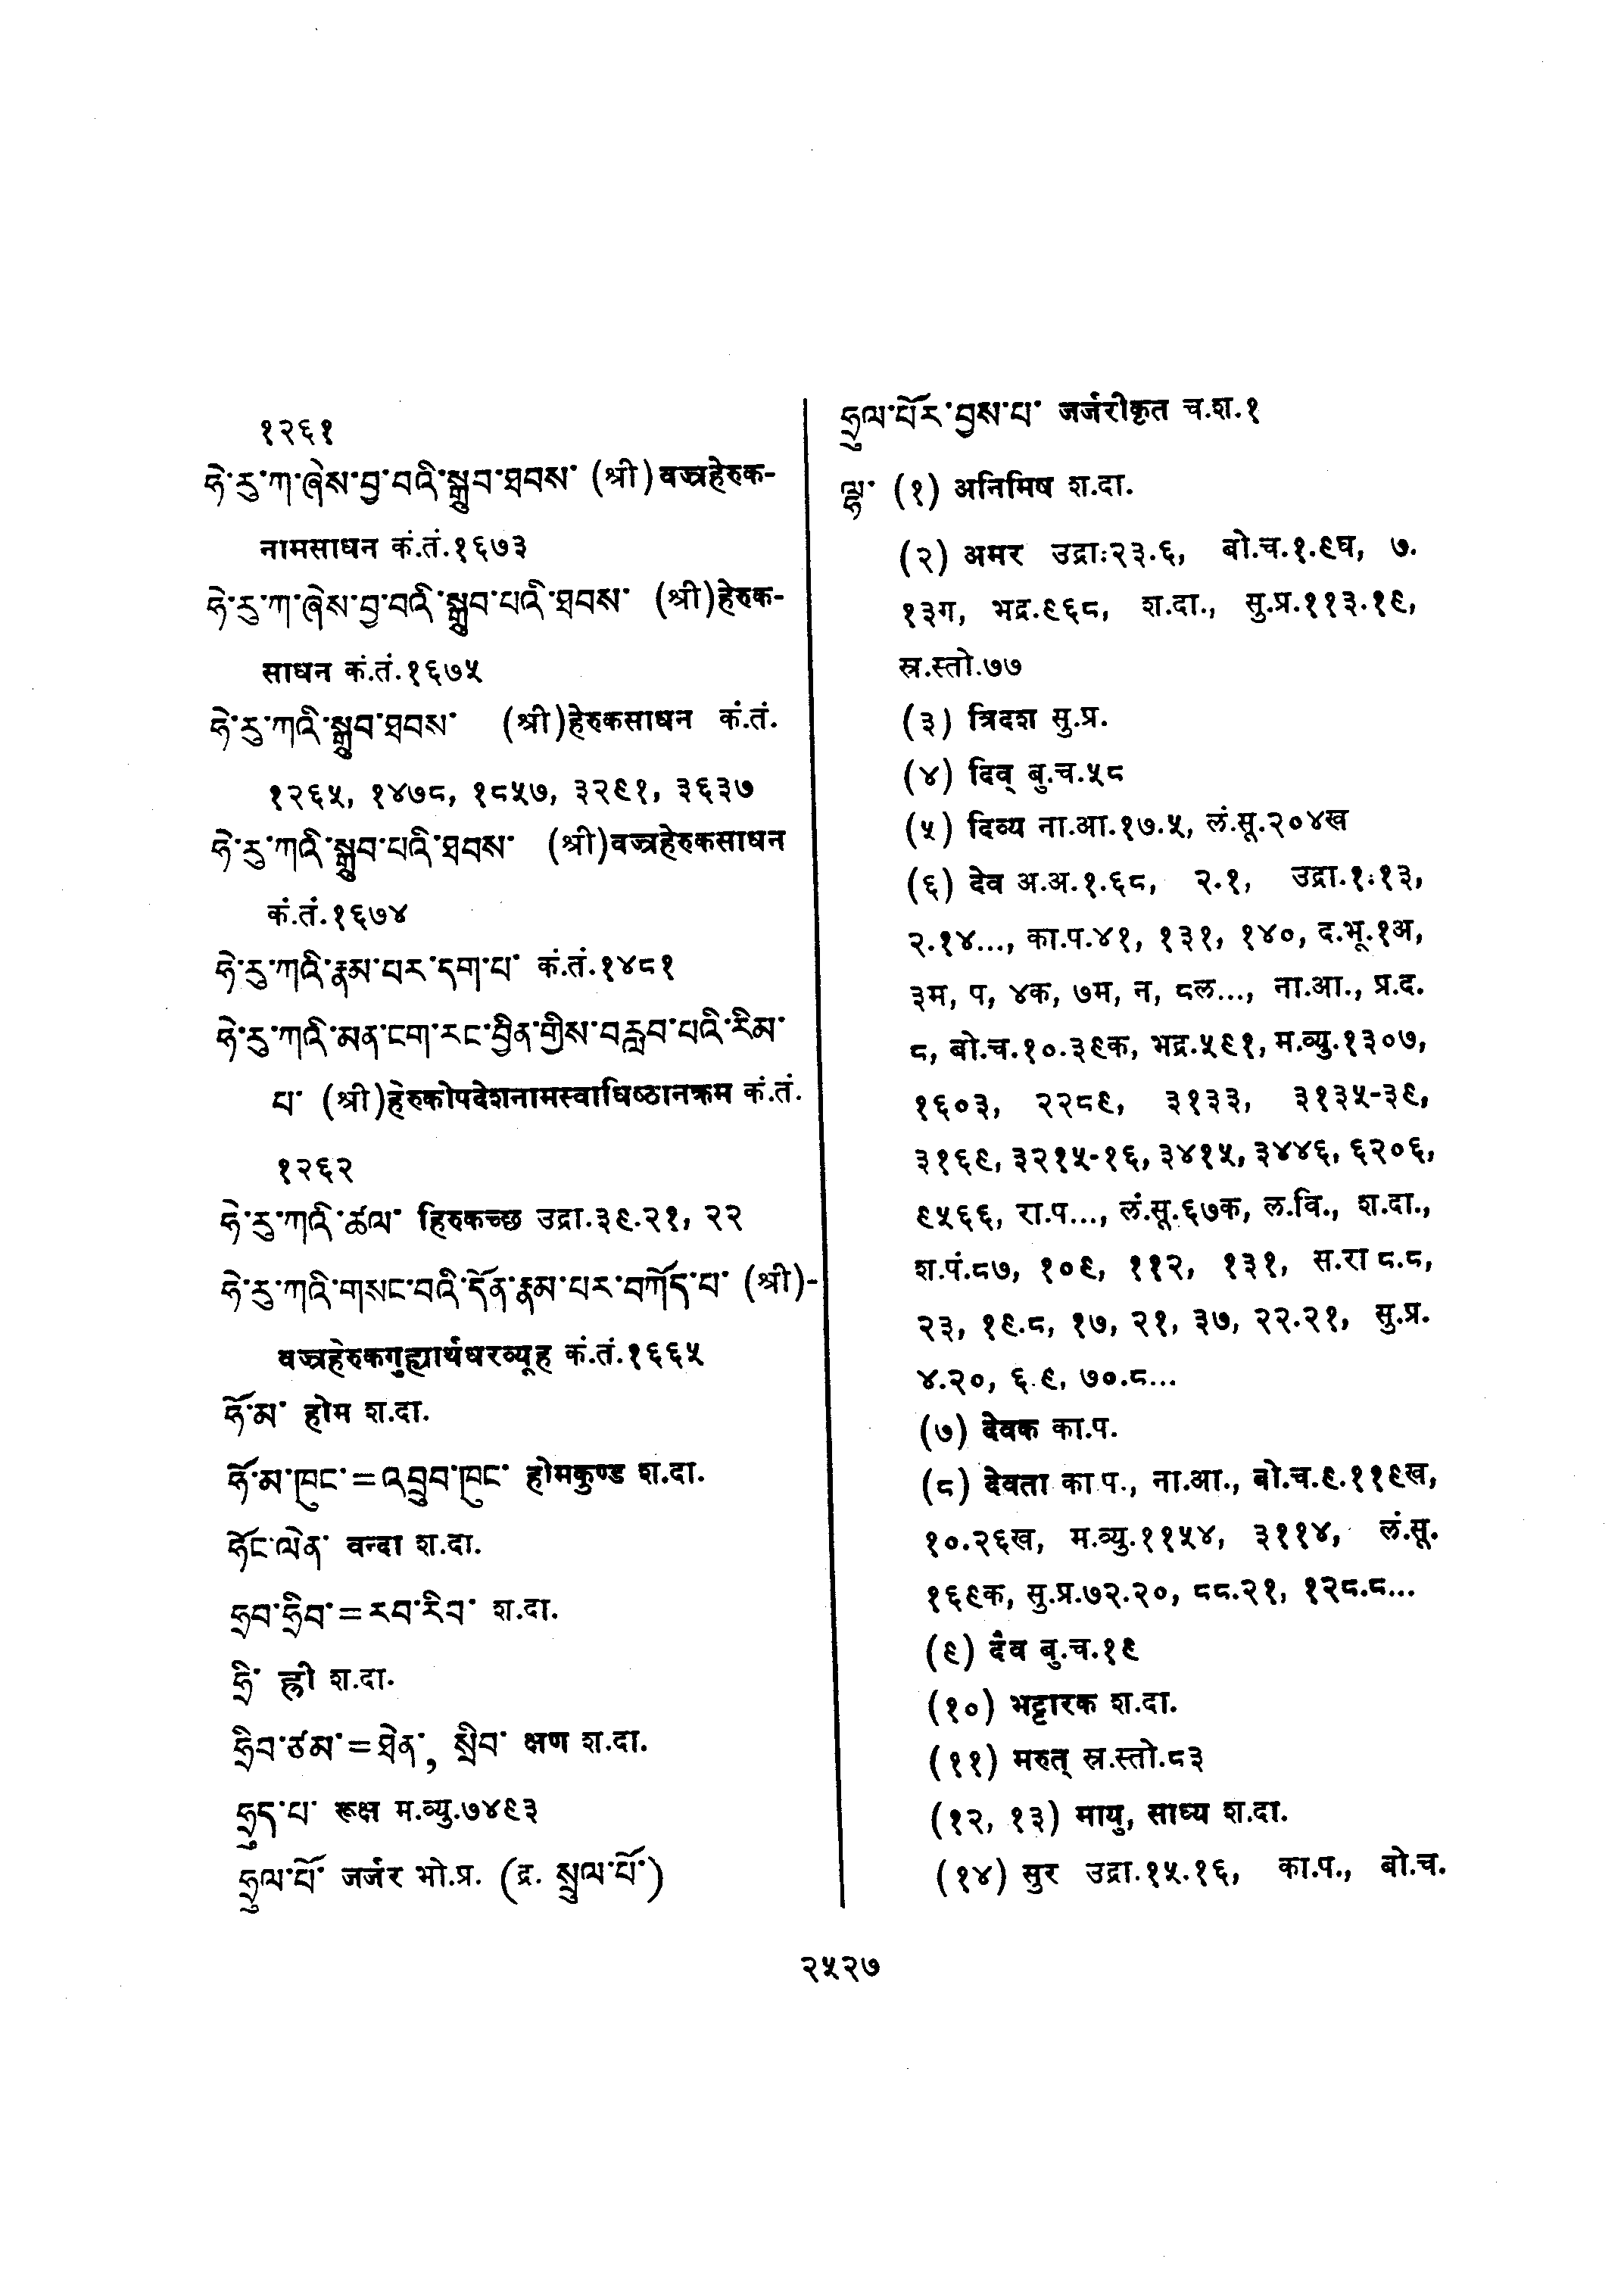 १२६१
ཧེ་རུ་ཀ་ཞེས་བྱ་བའི་སྒྲུབ་ཐབས་ (श्री)वज्रहेरुक-
नामसाधन कं.तं.१६७३
ཧེ་རུ་ཀ་ཞེས་བྱ་བའི་སྒྲུབ་པའི་ཐབས་ (श्री)हेरुक-
साधन कं.तं.१६७५
ཧེ་རུ་ཀའི་སྒྲུབ་ཐབས་ (श्री)हेरुकसाधन कं.तं.
१२६५, १४७८, १८५७, ३२९१, ३६३७
ཧེ་རུ་ཀའི་སྒྲུབ་པའི་ཐབས་ (श्री)वज्रहेरुकसाधन
कं.तं.१६७४
ཧེ་རུ་ཀའི་རྣམ་པར་དག་པ་ कं.तं.१४८१
ཧེ་རུ་ཀའི་མན་ངག་རང་བྱིན་གྱིས་བརླབ་པའི་རིམ་
པ་ (श्री)हेरुकोपदेशनामस्वाधिष्ठानक्रम कं.तं.
१२६२
ཧེ་རུ་ཀའི་ཚལ་ हिरुकच्छ उद्रा.३९.२१, २२
ཧེ་རུ་ཀའི་གསང་བའི་དོན་རྣམ་པར་བཀོད་པ་ (श्री)-
वज्रहेरुकगुह्यार्थधरव्यूह कं.तं.१६६५
ཧོ་མ་ होम श.दा.
ཧོ་མ་ཁུང་=འབྲུབ་ཁུང་ होमकुण्ड श.दा.
ཧོང་ལེན་ वन्दा श.दा.
ཧྲབ་ཧྲིབ་=རབ་རིབ་ श.दा.
ཧྲི་ ह्री श.दा.
ཧྲིབ་ཙམ་=ཐེན་, སྲིབ་ क्षण श.दा.
ཧྲུད་པ་ रूक्ष म.व्यु.७४९३
ཧྲུལ་པོ་ जर्जर भो.प्र. (द्र. སྲུལ་པོ་)
ཧྲུལ་པོར་བྱས་པ་ जर्जरीकृत च.श.१
ལྷ་ (१) अनिमिष श.दा.
(२) अमर उद्राः२३.६, बो.च.१.९घ, ७.
१३ग, भद्र.९६८, श.दा., सु.प्र.११३.१९,
स्र.स्तो.७७
(३) त्रिदश सु.प्र.
(४) दिव् बु.च.५८
(५) दिव्य ना.आ.१७.५, लं.सू.२०४ख
(६) देव अ.अ.१.६८, २.१, उद्रा.१:१३,
२.१४..., का.प.४१, १३१, १४०, द.भू.१अ,
३म, प, ४क, ७म, न, ८ल..., ना.आ., प्र.द.
८, बो.च.१०.३९क, भद्र.५९१, म.व्यु.१३०७,
१६०३, २२८९, ३१३३, ३१३५-३९,
३१६९, ३२१५-१६, ३४१५, ३४४६, ६२०६,
९५६६, रा.प..., लं.सू.६७क, ल.वि., श.दा.,
श.पं.८७, १०९, ११२, १३१, स.रा ८.८,
२३, १९.८, १७, २१, ३७, २२.२१, सु.प्र.
४.२०, ६.९, ७०.८...
(७) देवक का.प.
(८) देवता का प., ना.आ., बो.च.९.११९ख,
१०.२६ख, म.व्यु.११५४, ३११४, लं.सू.
१६९क, सु.प्र.७२.२०, ८८.२१, १२८.८...
(९) दैव बु.च.१९
(१०) भट्टारक श.दा.
(११) मरुत् स्र.स्तो.८३
(१२, १३) मायु, साध्य श.दा.
(१४) सुर उद्रा.१५.१६, का.प., बो.च.
२५२७